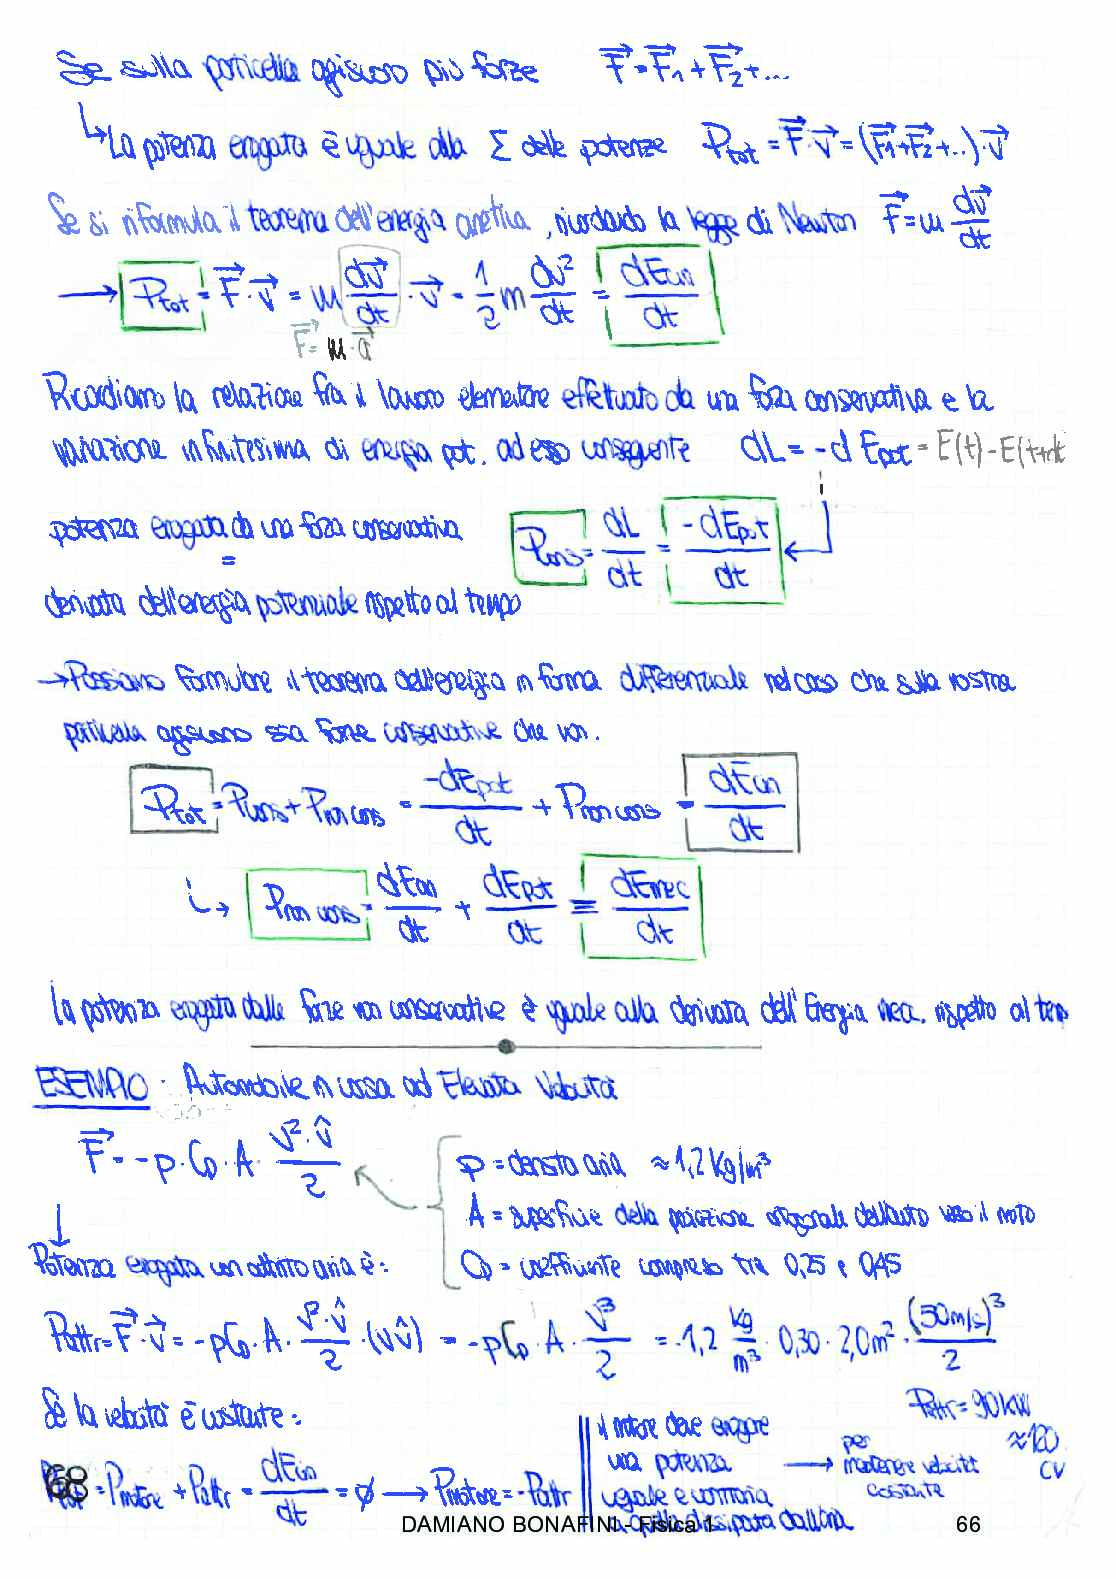 Se sulla particella agiscono più forze F = F1 + F2 + ...
↳ La potenza erogata è uguale alla Σ delle potenze Ptot = F · v = (F1 + F2 + ..) · v
Se si riformula il teorema dell'energia cinetica, ricordando la legge di Newton F = m dv/dt
→ Ptot = F · v = m dv/dt · v = 1/2 m dv²/dt = dEcin/dt
F = m · a
Ricordiamo la relazione fra il lavoro elementare effettuato da una forza conservativa e la
variazione infinitesima di energia pot. ad esso conseguente dL = -dEpot = E(t) - E(t+dt
potenza erogata da una forza conservativa Pcons = dL/dt = -dEpot/dt
=
derivata dell'energia potenziale rispetto al tempo
→ Possiamo formulare il teorema dell'energia in forma differenziale nel caso che sulla nostra
particella agiscano sia forze conservative che non.
Ptot = Pcons + Pnon cons = -dEpot/dt + Pnon cons = dEcin/dt
↳ Pnon cons = dEcin/dt + dEpot/dt ≡ dEmec/dt
La potenza erogata dalle forze non conservative è uguale alla derivata dell'Energia mecc. rispetto al tem
ESEMPIO : Automobile in corsa ad Elevata Velocità
F = -ρ · CD · A · v² · v̂/2
ρ = densità aria ≈ 1,2 Kg/m³
A = superficie della proiezione ortogonale dell'auto verso il moto
CD = coefficiente compreso tra 0,25 e 0,45
Potenza erogata con attrito aria è:
Pattr = F · v = -ρCD · A · v² · v̂/2 · (v v̂) = -ρCD · A · v³/2 = -1,2 kg/m³ · 0,30 · 2,0 m² · (50 m/s)³/2
-Pattr = 90 KW
≈ 120 CV
Se la velocità è costante:
Ptot = Pmotore + Pattr = dEcin/dt = ∅ → Pmotore = -Pattr
il motore deve erogare
una potenza
uguale e contraria
a quella dissipata dall'aria
→ per
mantenere velocità
costante
68
DAMIANO BONAFINI - Fisica 1
66